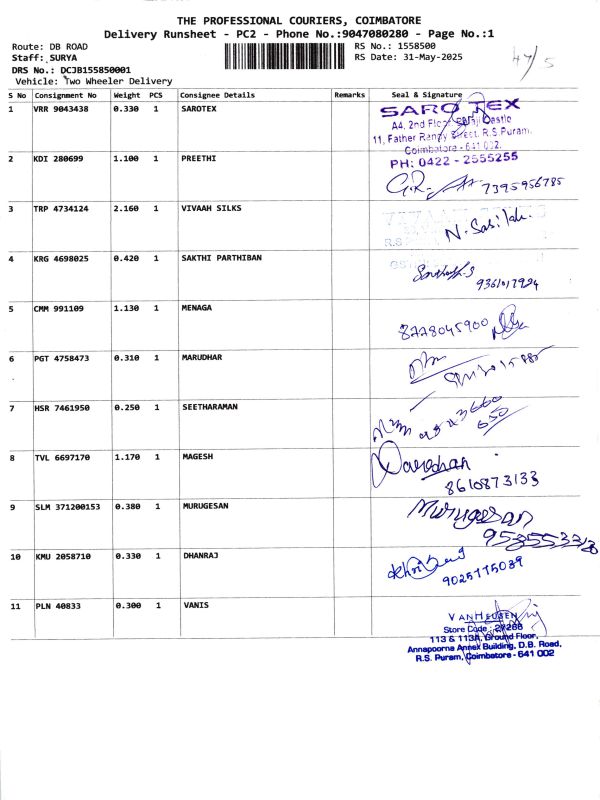 THE PROFESSIONAL COURIERS, COIMBATORE
Delivery Runsheet - PC2 - Phone No.:9047080280 - Page No.:1
Route: DB ROAD
Staff: SURYA
DRS No.: DCJB155850001
Vehicle: Two Wheeler Delivery
RS No.: 1558500
RS Date: 31-May-2025
47/5
S No Consignment No Weight PCS Consignee Details Remarks Seal & Signature
1 VRR 9043438 0.330 1 SAROTEX
SARO TEX
A4, 2nd Floor, Balaji Castle
11, Father Randy Street, R.S.Puram,
Coimbatore - 641 002.
PH: 0422 - 2555255
2 KDI 280699 1.100 1 PREETHI
7395956785
3 TRP 4734124 2.160 1 VIVAAH SILKS
R.S
4 KRG 4698025 0.420 1 SAKTHI PARTHIBAN
9361017924
5 CMM 991109 1.130 1 MENAGA
8778045900
6 PGT 4758473 0.310 1 MARUDHAR
7 HSR 7461950 0.250 1 SEETHARAMAN
650
8 TVL 6697170 1.170 1 MAGESH
8610873133
9 SLM 371200153 0.380 1 MURUGESAN
Murugesan
10 KMU 2058710 0.330 1 DHANRAJ
9025115039
11 PLN 40833 0.300 1 VANIS
VANHEUSEN
Store Code :
113 & 113A, Ground Floor,
Annapoorna Annex Building, D.B. Road,
R.S. Puram, Coimbatore - 641 002